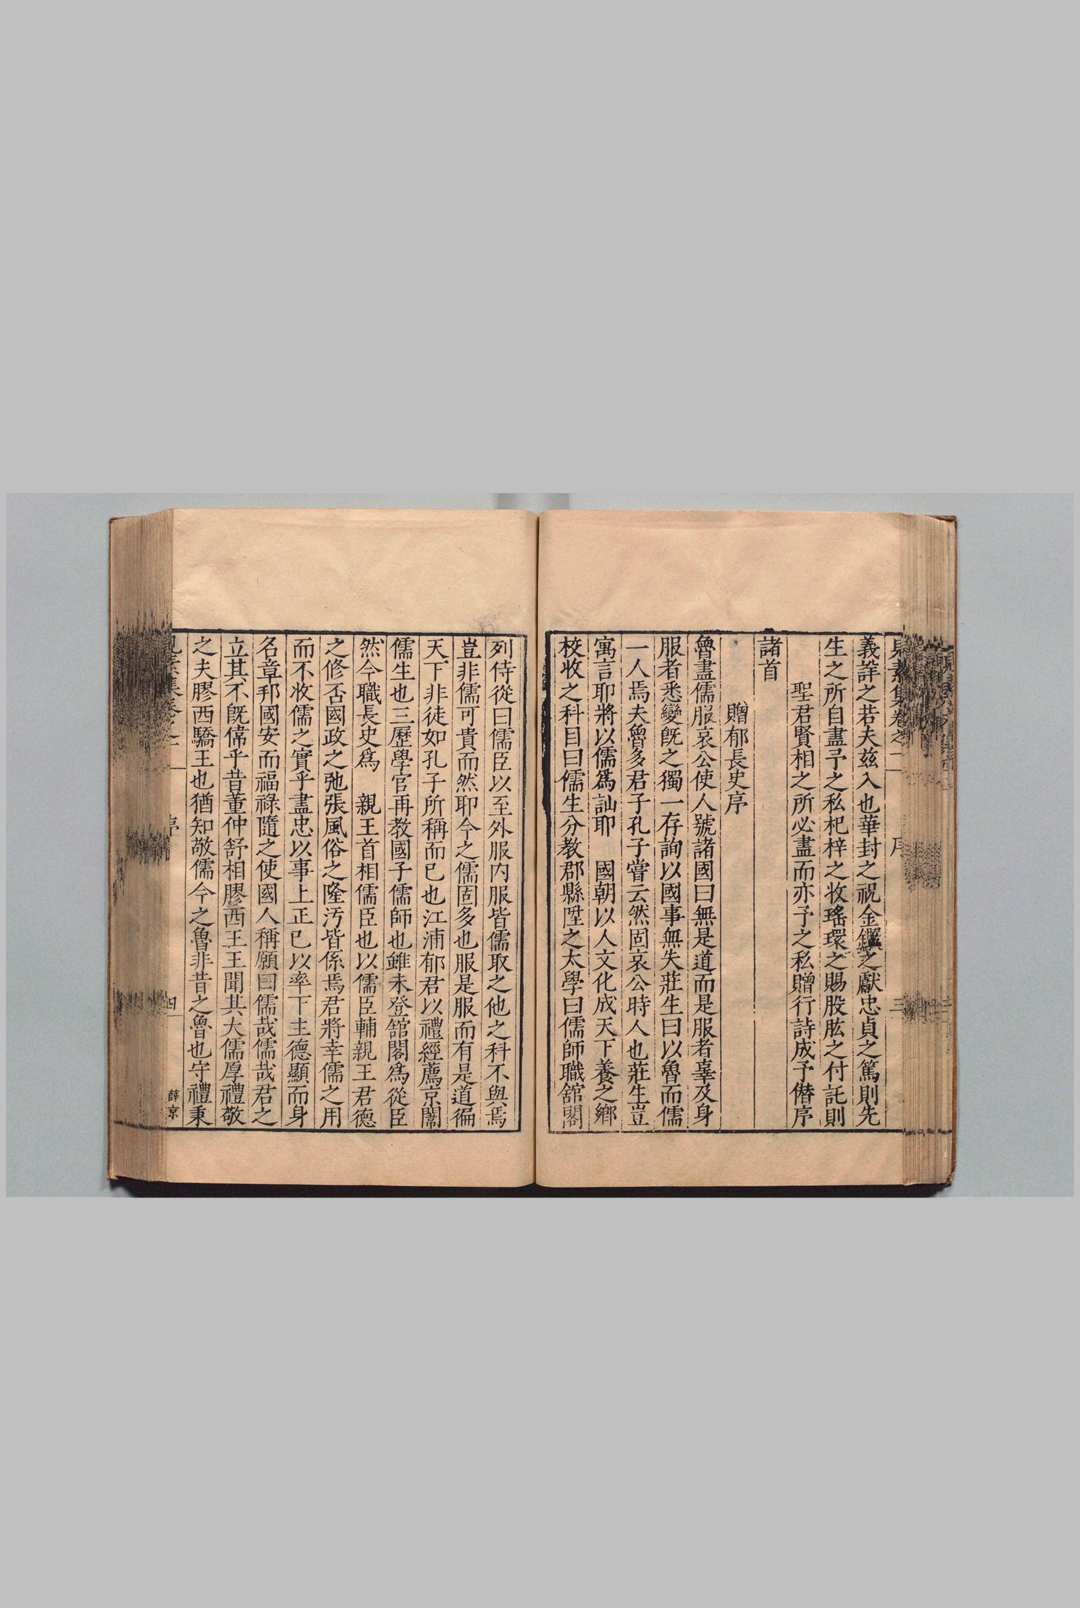 義詳之若夫茲入也華封之祝金鑑之獻忠貞之篤則先
生之所自盡予之私杞梓之收瑤環之賜股肱之付託則
聖君賢相之所必盡而亦予之私贈行詩成予僭序
諸首
贈郁長史序
魯盡儒服哀公使人號諸國曰無是道而是服者辜及身
服者悉變旣之獨一存詢以國事無失莊生曰以魯而儒
一人焉夫魯多君子孔子嘗云然固哀公時人也莊生豈
寓言耶將以儒爲訕耶 國朝以人文化成天下養之鄉
校收之科目曰儒生分教郡縣陞之太學曰儒師職舘閣
列侍從曰儒臣以至外服內服皆儒取之他之科不與焉
豈非儒可貴而然耶今之儒固多也服是服而有是道徧
天下非徒如孔子所稱而已也江浦郁君以禮經薦京闈
儒生也三歷學官再教國子儒師也雖未登舘閣爲從臣
然今職長史爲 親王首相儒臣也以儒臣輔親王君德
之修否國政之弛張風俗之隆汚皆係焉君將幸儒之用
而不收儒之實乎盡忠以事上正已以率下主德顯而身
名章邦國安而福祿隨之使國人稱願曰儒哉儒哉君之
立其不旣偉乎昔董仲舒相膠西王王聞其大儒厚禮敬
之夫膠西驕王也猶知敬儒今之魯非昔之魯也守禮秉
序
四
薛京